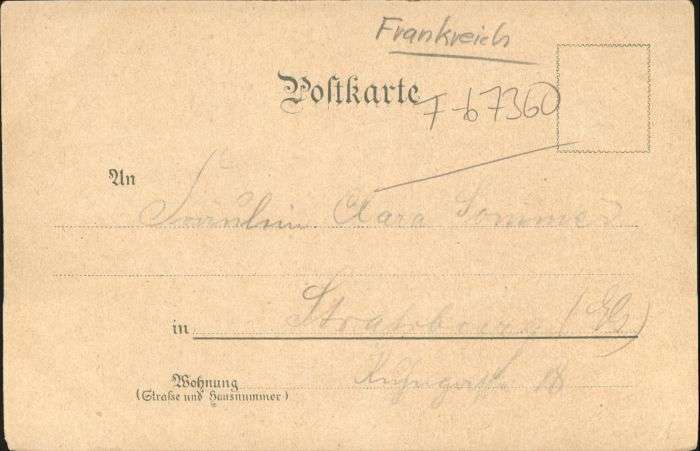 Frankreich
Poſtkarte
F-67360
An
Fräulein Clara Sommer
in Straßbourg (Els)
Wohnung 18
(Straße und Hausnummer)